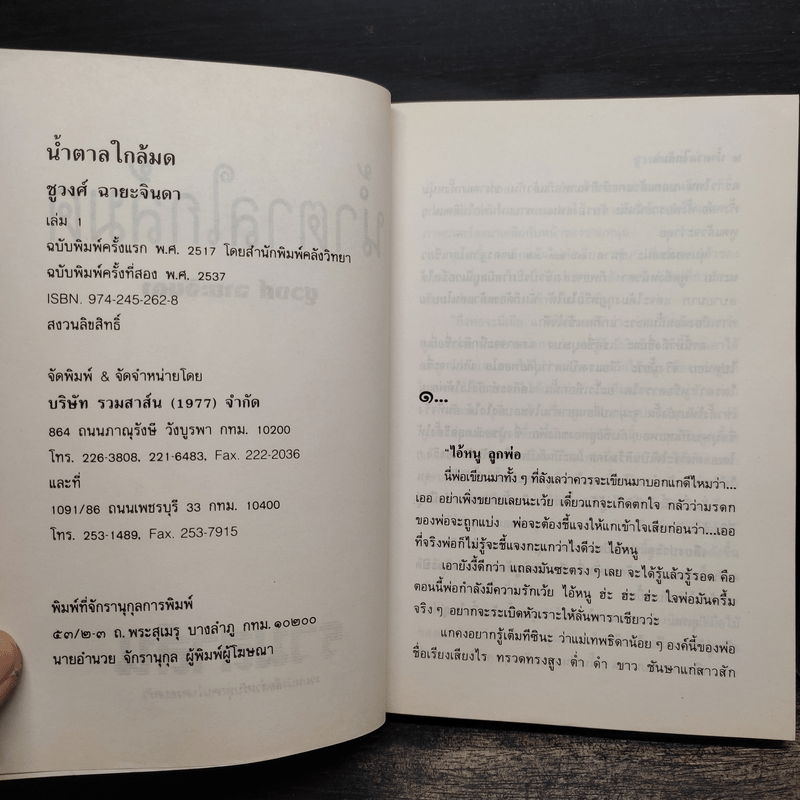 น้ำตาลใกล้มด
ชูวงศ์ ฉายะจินดา
เล่ม 1
ฉบับพิมพ์ครั้งแรก พ.ศ. 2517 โดยสำนักพิมพ์คลังวิทยา
ฉบับพิมพ์ครั้งที่สอง พ.ศ. 2537
ISBN. 974-245-262-8
สงวนลิขสิทธิ์
จัดพิมพ์ & จัดจำหน่ายโดย
บริษัท รวมสาส์น (1977) จำกัด
864 ถนนภาณุรังษี วังบูรพา กทม. 10200
โทร. 226-3808, 221-6483, Fax. 222-2036
และที่
1091/86 ถนนเพชรบุรี 33 กทม. 10400
โทร. 253-1489, Fax. 253-7915
พิมพ์ที่จักรานุกุลการพิมพ์
๕๓/๒-๓ ถ.พระสุเมรุ บางลำภู กทม.๑๐๒๐๐
นายอำนวย จักรานุกุล ผู้พิมพ์ผู้โฆษณา
๑...
"ไอ้หนู ลูกพ่อ
นี่พ่อเขียนมาทั้ง ๆ ที่ลังเลว่าควรจะเขียนมาบอกแกดีไหมว่า...
เออ อย่าเพิ่งขยายเลยนะเว้ย เดี๋ยวแกจะเกิดตกใจ กลัวว่ามรดก
ของพ่อจะถูกแบ่ง พ่อจะต้องชี้แจงให้แกเข้าใจเสียก่อนว่า...เออ
ที่จริงพ่อก็ไม่รู้จะชี้แจงกะแกว่าไงดีว่ะ ไอ้หนู
เอายังงี้ดีกว่า แถลงมันซะตรง ๆ เลย จะได้รู้แล้วรู้รอด คือ
ตอนนี้พ่อกำลังมีความรักเว้ย ไอ้หนู ฮ่ะ ฮ่ะ ฮ่ะ ใจพ่อมันครึ้ม
จริง ๆ อยากจะระเบิดหัวเราะให้ลั่นพาราเชียวว่ะ
แกคงอยากรู้เต็มทีซินะ ว่าแม่เทพธิดาน้อย ๆ องค์นี้ของพ่อ
ชื่อเรียงเสียงไร ทรวดทรงสูง ต่ำ ดำ ขาว ชันษาแก่สาวสัก